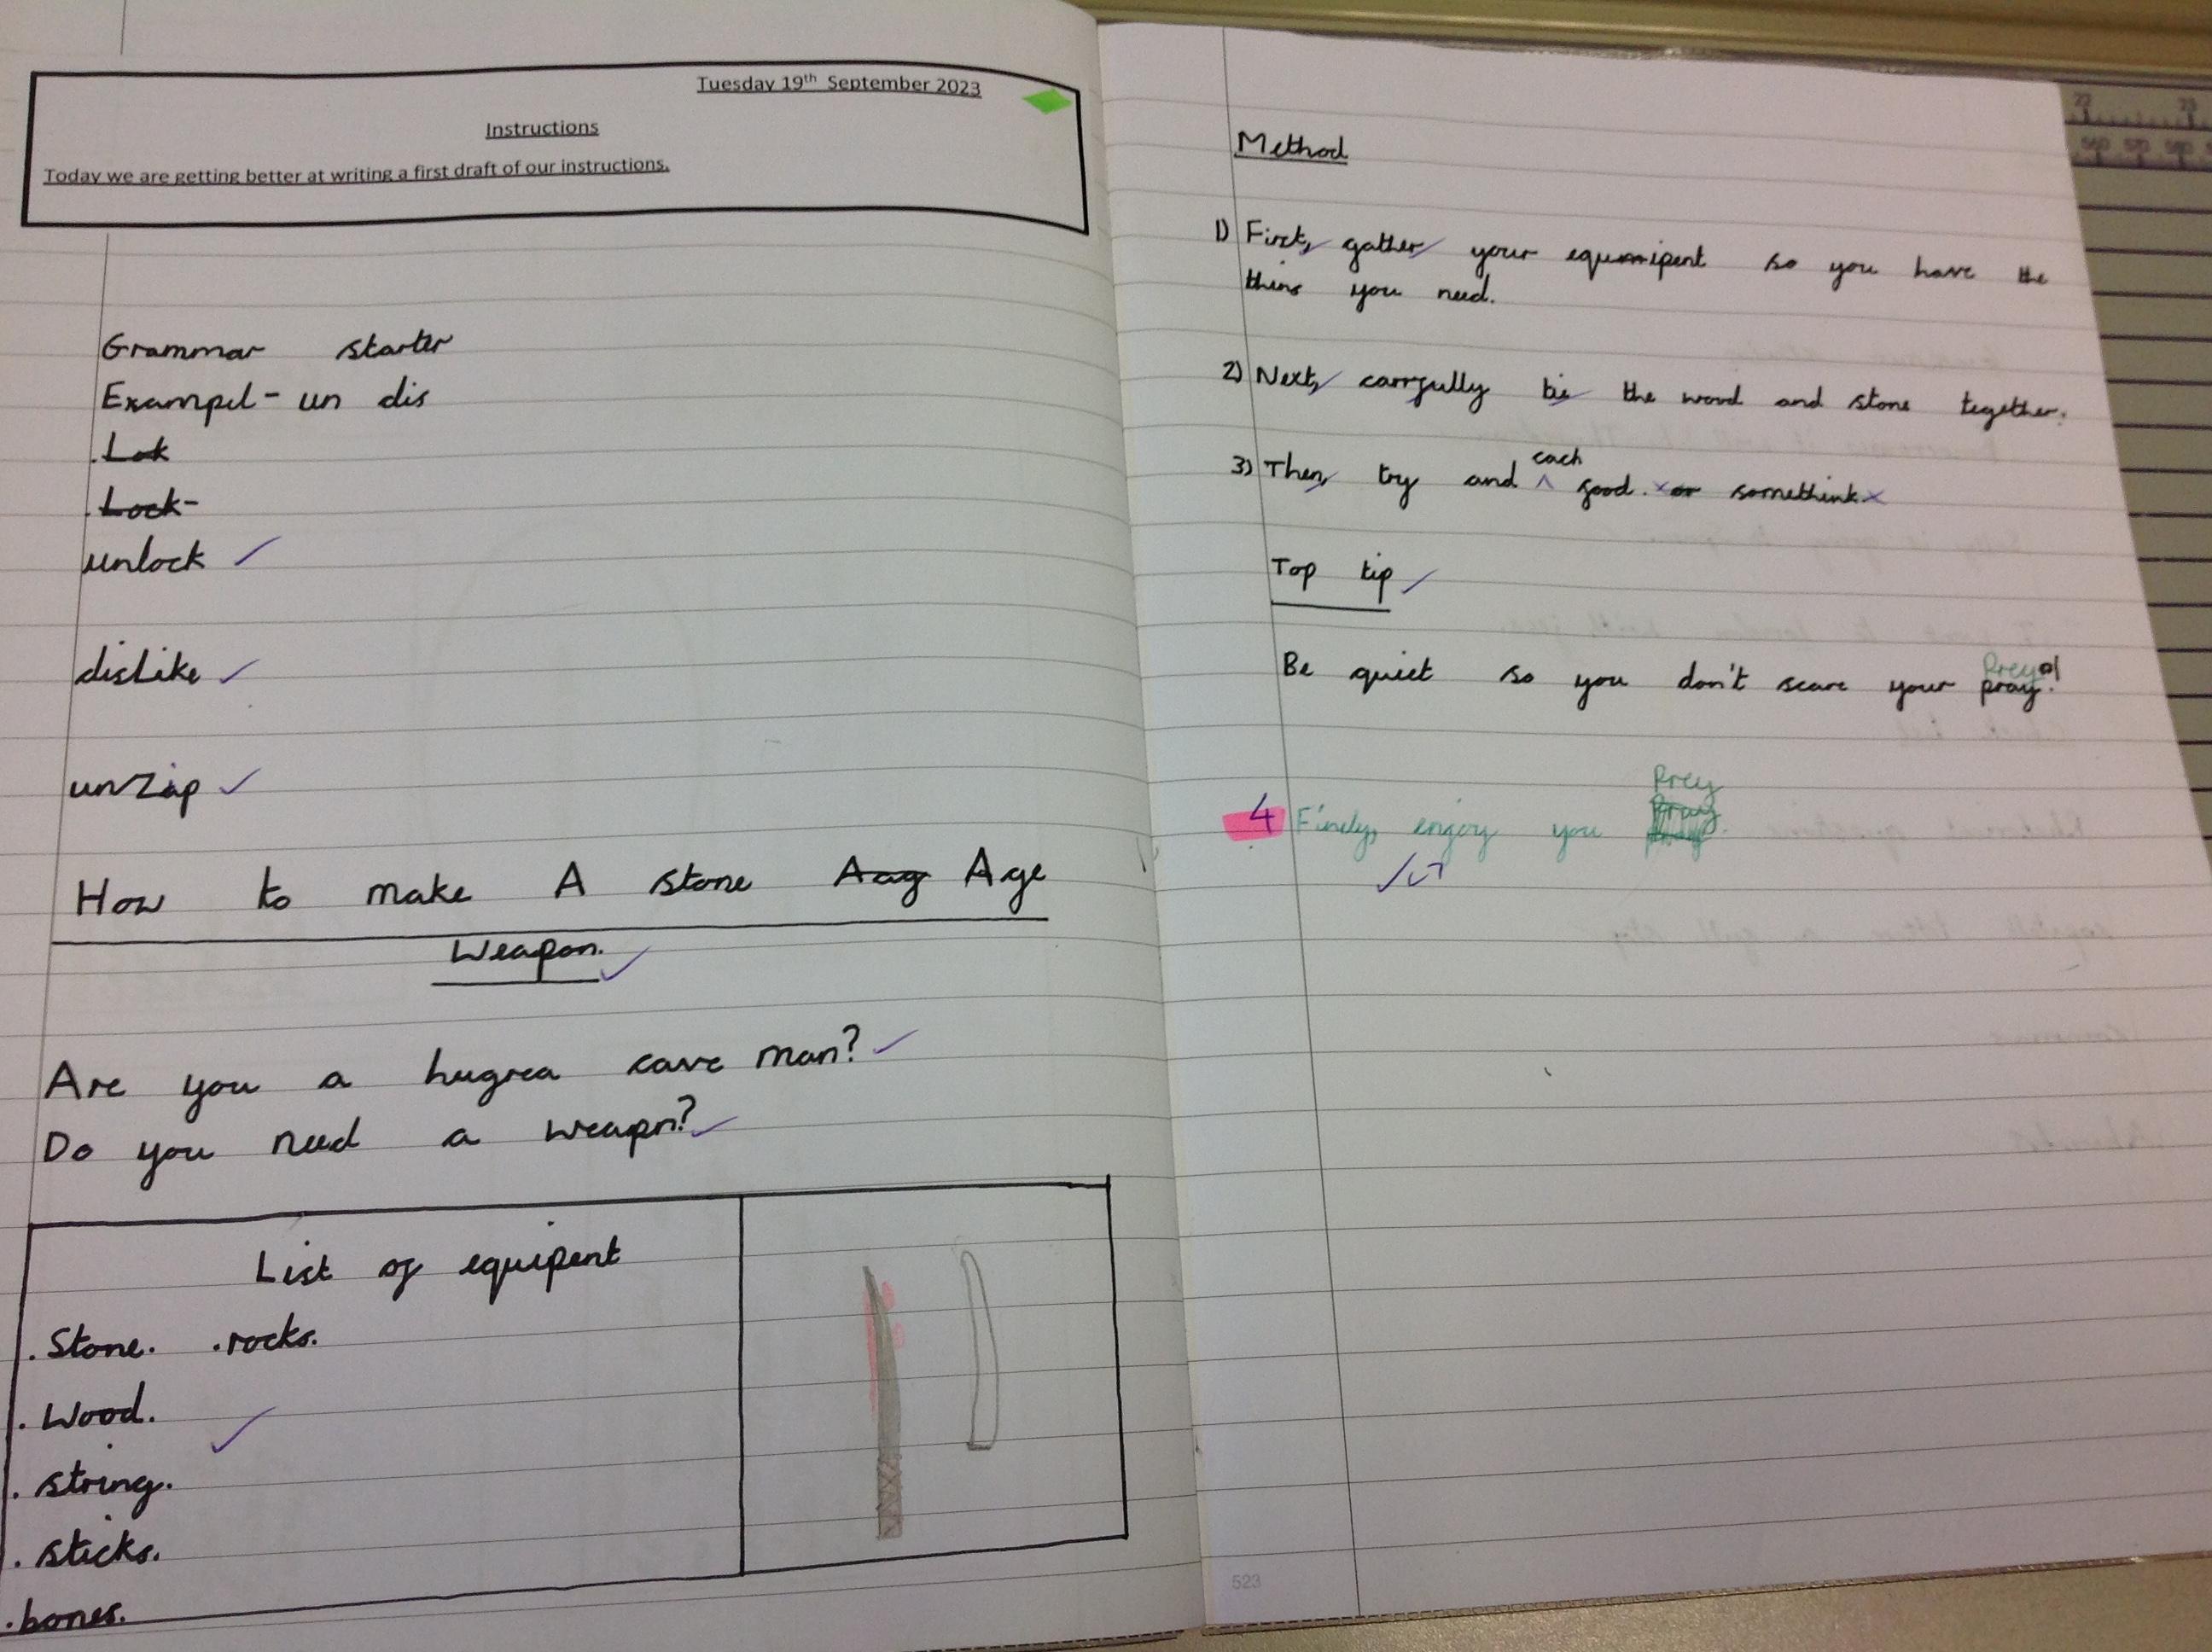 Tuesday 19th September 2023
Instructions
Today we are getting better at writing a first draft of our instructions.
Grammar starter
Exampel - un dis
. Lok
. Lock-
unlock ✓
dislike ✓
unzip ✓
How to make A stone Aag Age
Weapon. ✓
Are you a hugrea cave man? ✓
Do you need a weapn? ✓
List of equipent
. Stone. . rocks.
. Wood.
. string.
. sticks.
. bones.
Method
1) First, gather your equmipent so you have the
thins you need.
2) Next, carrfully tie the wood and stone together.
3) Then, try and cach good. or somethink.
Top tip ✓
Be quiet so you don't scare your pray! Prey
4 Finely, enjoy you Pray. Prey
523